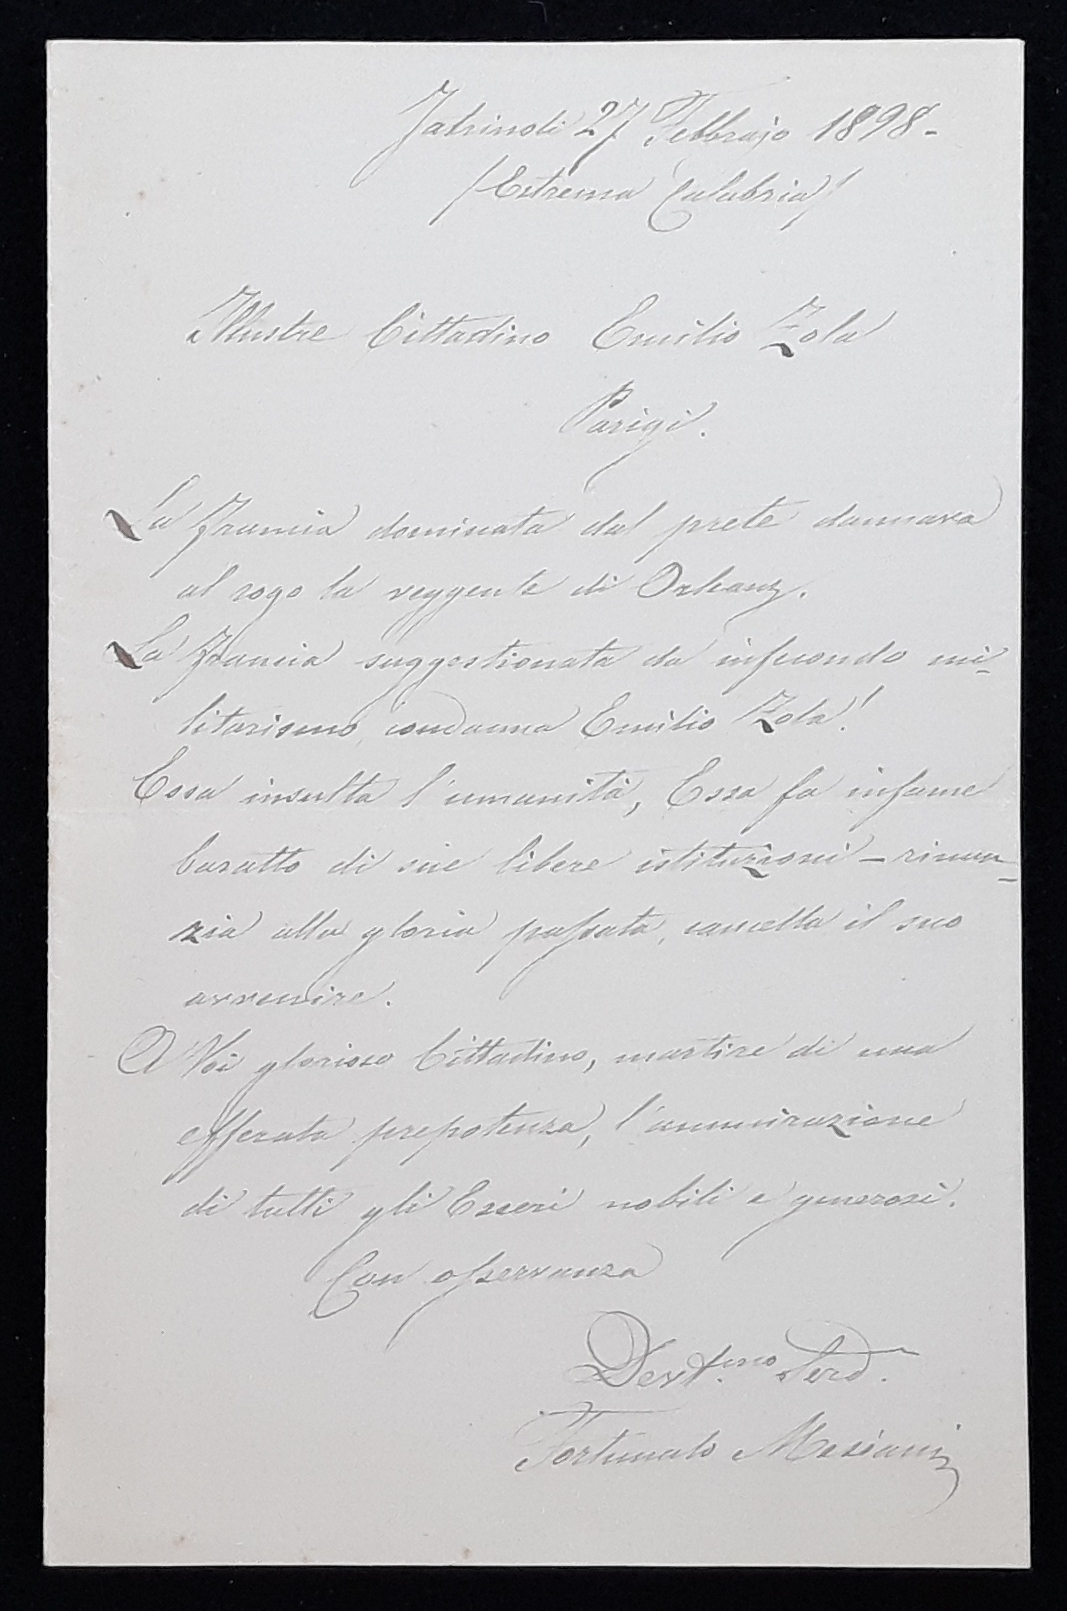 Jatrinoli 27 Febbrajo 1898-
/Estrema Calabria/
Illustre Cittadino Emilio Zola
Parigi.
La Francia dominata dal prete dannava
al rogo la veggente di Orleans.
La Francia suggestionata da infecondo mi-
litarismo condanna Emilio Zola!
Essa insulta l'umanità, Essa fa infame
baratto di sue libere istituzioni - rinun-
zia alla gloria passata, cancella il suo
avvenire.
A Voi glorioso Cittadino, martire di una
efferata prepotenza, l'ammirazione
di tutti gli Esseri nobili e generosi.
Con osservanza
Devt.mo Serv.
Fortunato Mesiani